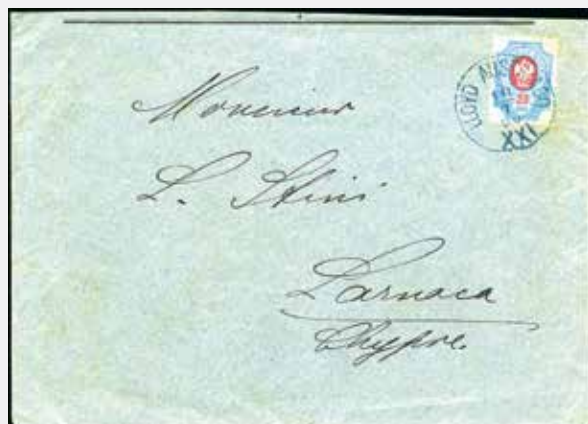 LLOYD AUSTR
XXI
20
Monsieur
L. Stini
Larnaca
Chypre.